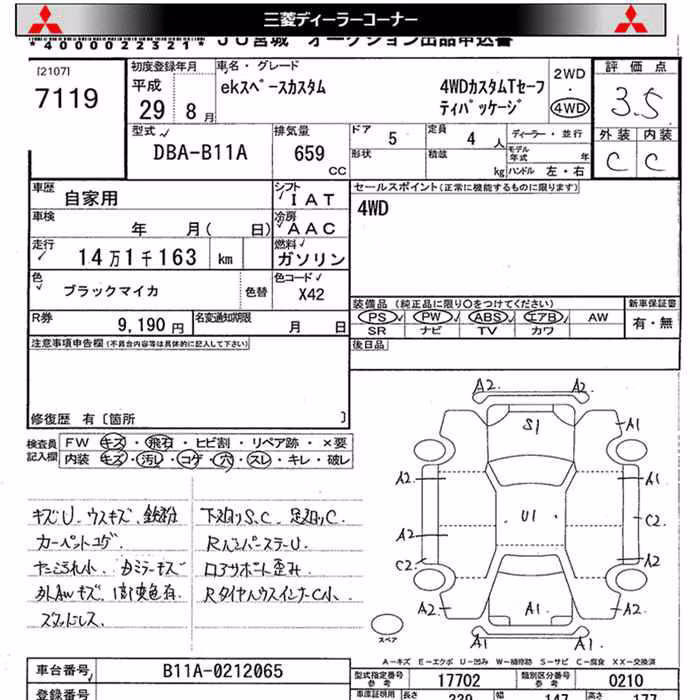 三菱ディーラーコーナー
*4000022321* JU宮城 オークション出品申込書
[2107]
7119
初度登録年月
平成
29 8月
車名・グレード
ekスペースカスタム 4WDカスタムTセーフ
ティパッケージ
2WD
・
4WD
評価点
3.5
外装 内装
C C
型式
DBA-B11A
排気量
659 CC
ドア 5
定員 4 人
形状
積載 kg
ディーラー・並行
モデル年式 年
ハンドル 左・右
車歴 自家用
シフト IAT
セールスポイント(正常に機能するものに限ります)
4WD
車検 年 月( 日)
冷房 AAC
走行 14万1千163 km
燃料 ガソリン
色 ブラックマイカ 色替
色コード X42
R券 9,190円
名変通知期限 月 日
装備品 (純正品に限り○をつけてください)
新車保証書
有・無
PS PW ABS エアB AW
SR ナビ TV カワ
後日品
注意事項申告欄(不具合内容等は具体的に記入して下さい)
修復歴 有 [箇所 ]
検査員記入欄
FW キズ・飛石・ヒビ割・リペア跡・×要
内装 キズ・汚レ・コゲ・穴・スレ・キレ・破レ
キズU ウスキズ
カーペットコゲ
下廻りS、C 足廻りC
A2. A2.
S1
A1
A2 A1
U1 C2
A2
C2 A2
A2 A2
A1
A1 A1
スペア
A-キズ E-エクボ U-凹み W-補修跡 S-サビ C-腐食 XX-交換済
車台番号 B11A-0212065
型式指定番号 参考 17702
類別区分番号 参考 0210
登録番号
車庫証明用 参考 長さ 339 幅 147 高さ 177